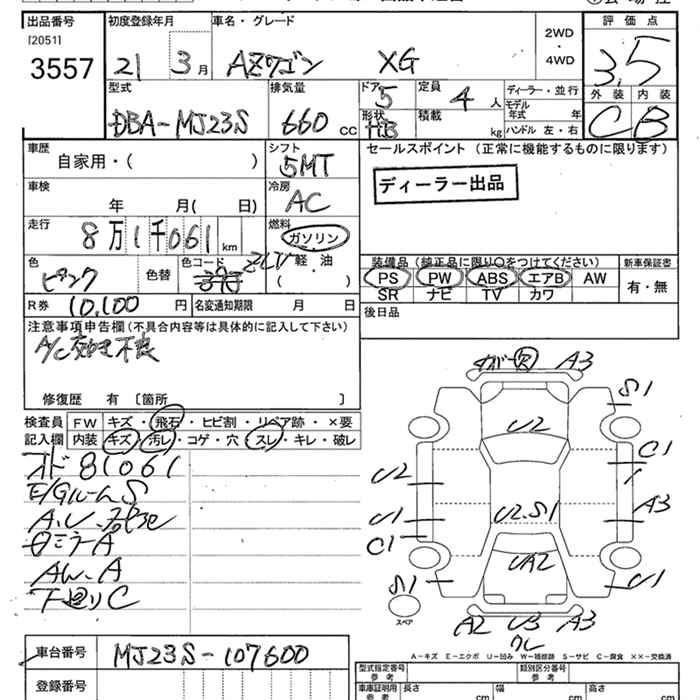 出品番号 初度登録年月 車名・グレード 2WD・4WD 評価点
[2051]
3557 21 3月 AZワゴン XG 3.5
外装 内装
C B
型式 排気量 ドア 5 定員 4人 ディーラー・並行
DBA-MJ23S 660cc 形状 HB 積載 kg モデル年式 年
ハンドル 左・右
車歴 シフト セールスポイント (正常に機能するものに限ります)
自家用・( ) 5MT
ディーラー出品
車検 冷房
年 月( 日) AC
走行 燃料
8万1千061km ガソリン
軽油
( )
色 色替 色コード ZLV
ピンク
装備品(純正品に限り○をつけてください) 新車保証書
PS PW ABS エアB AW 有・無
SR ナビ TV カワ
R券 10,100円 名変通知期限 月 日 後日品
注意事項申告欄(不具合内容等は具体的に記入して下さい)
A/C 効き不良
修復歴 有 [箇所 ]
検査員 FW キズ・飛石・ヒビ割・リペア跡・×要
記入欄 内装 キズ・汚レ・コゲ・穴・スレ・キレ・破レ
オド 81061
E/Gルーム S
日ミラーA
AW、A
下廻りC
A3
S1
U2
C1
U2
U2.S1
A3
U1
C1
UA2
S1
U1
スペア
A2 U3 A3
クレ
A-キズ E-エクボ U-凹み W-補修跡 S-サビ C-腐食 ××-交換済
車台番号 MJ23S-107600
登録番号
型式指定番号 参考 類別区分番号 参考
車庫証明用 参考 長さ cm 幅 cm 高さ cm